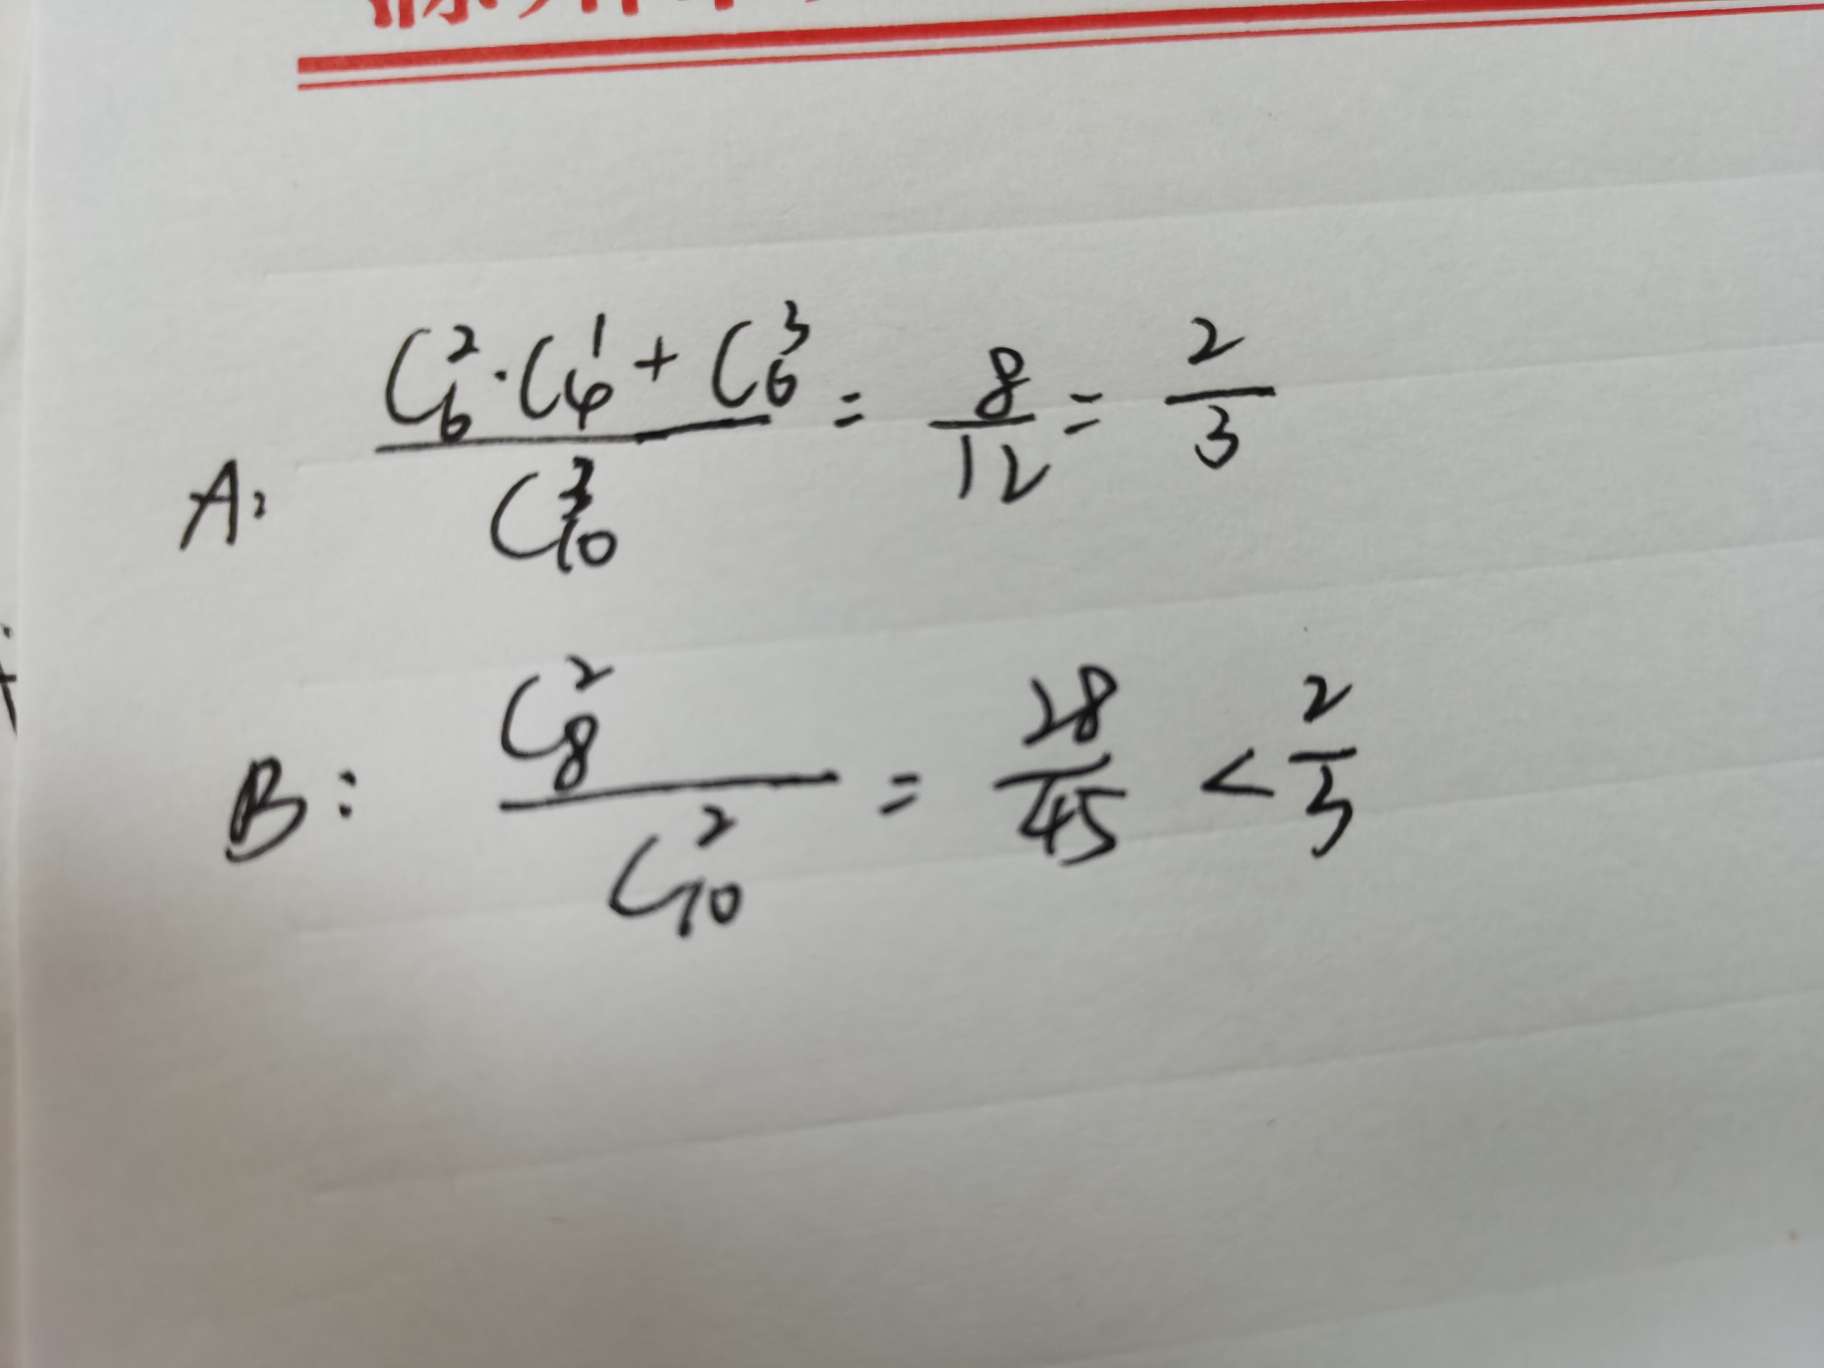 A: (C_6^2 · C_4^1 + C_6^3) / C_10^3 = 8/12 = 2/3
B: C_8^2 / C_10^2 = 28/45 < 2/3